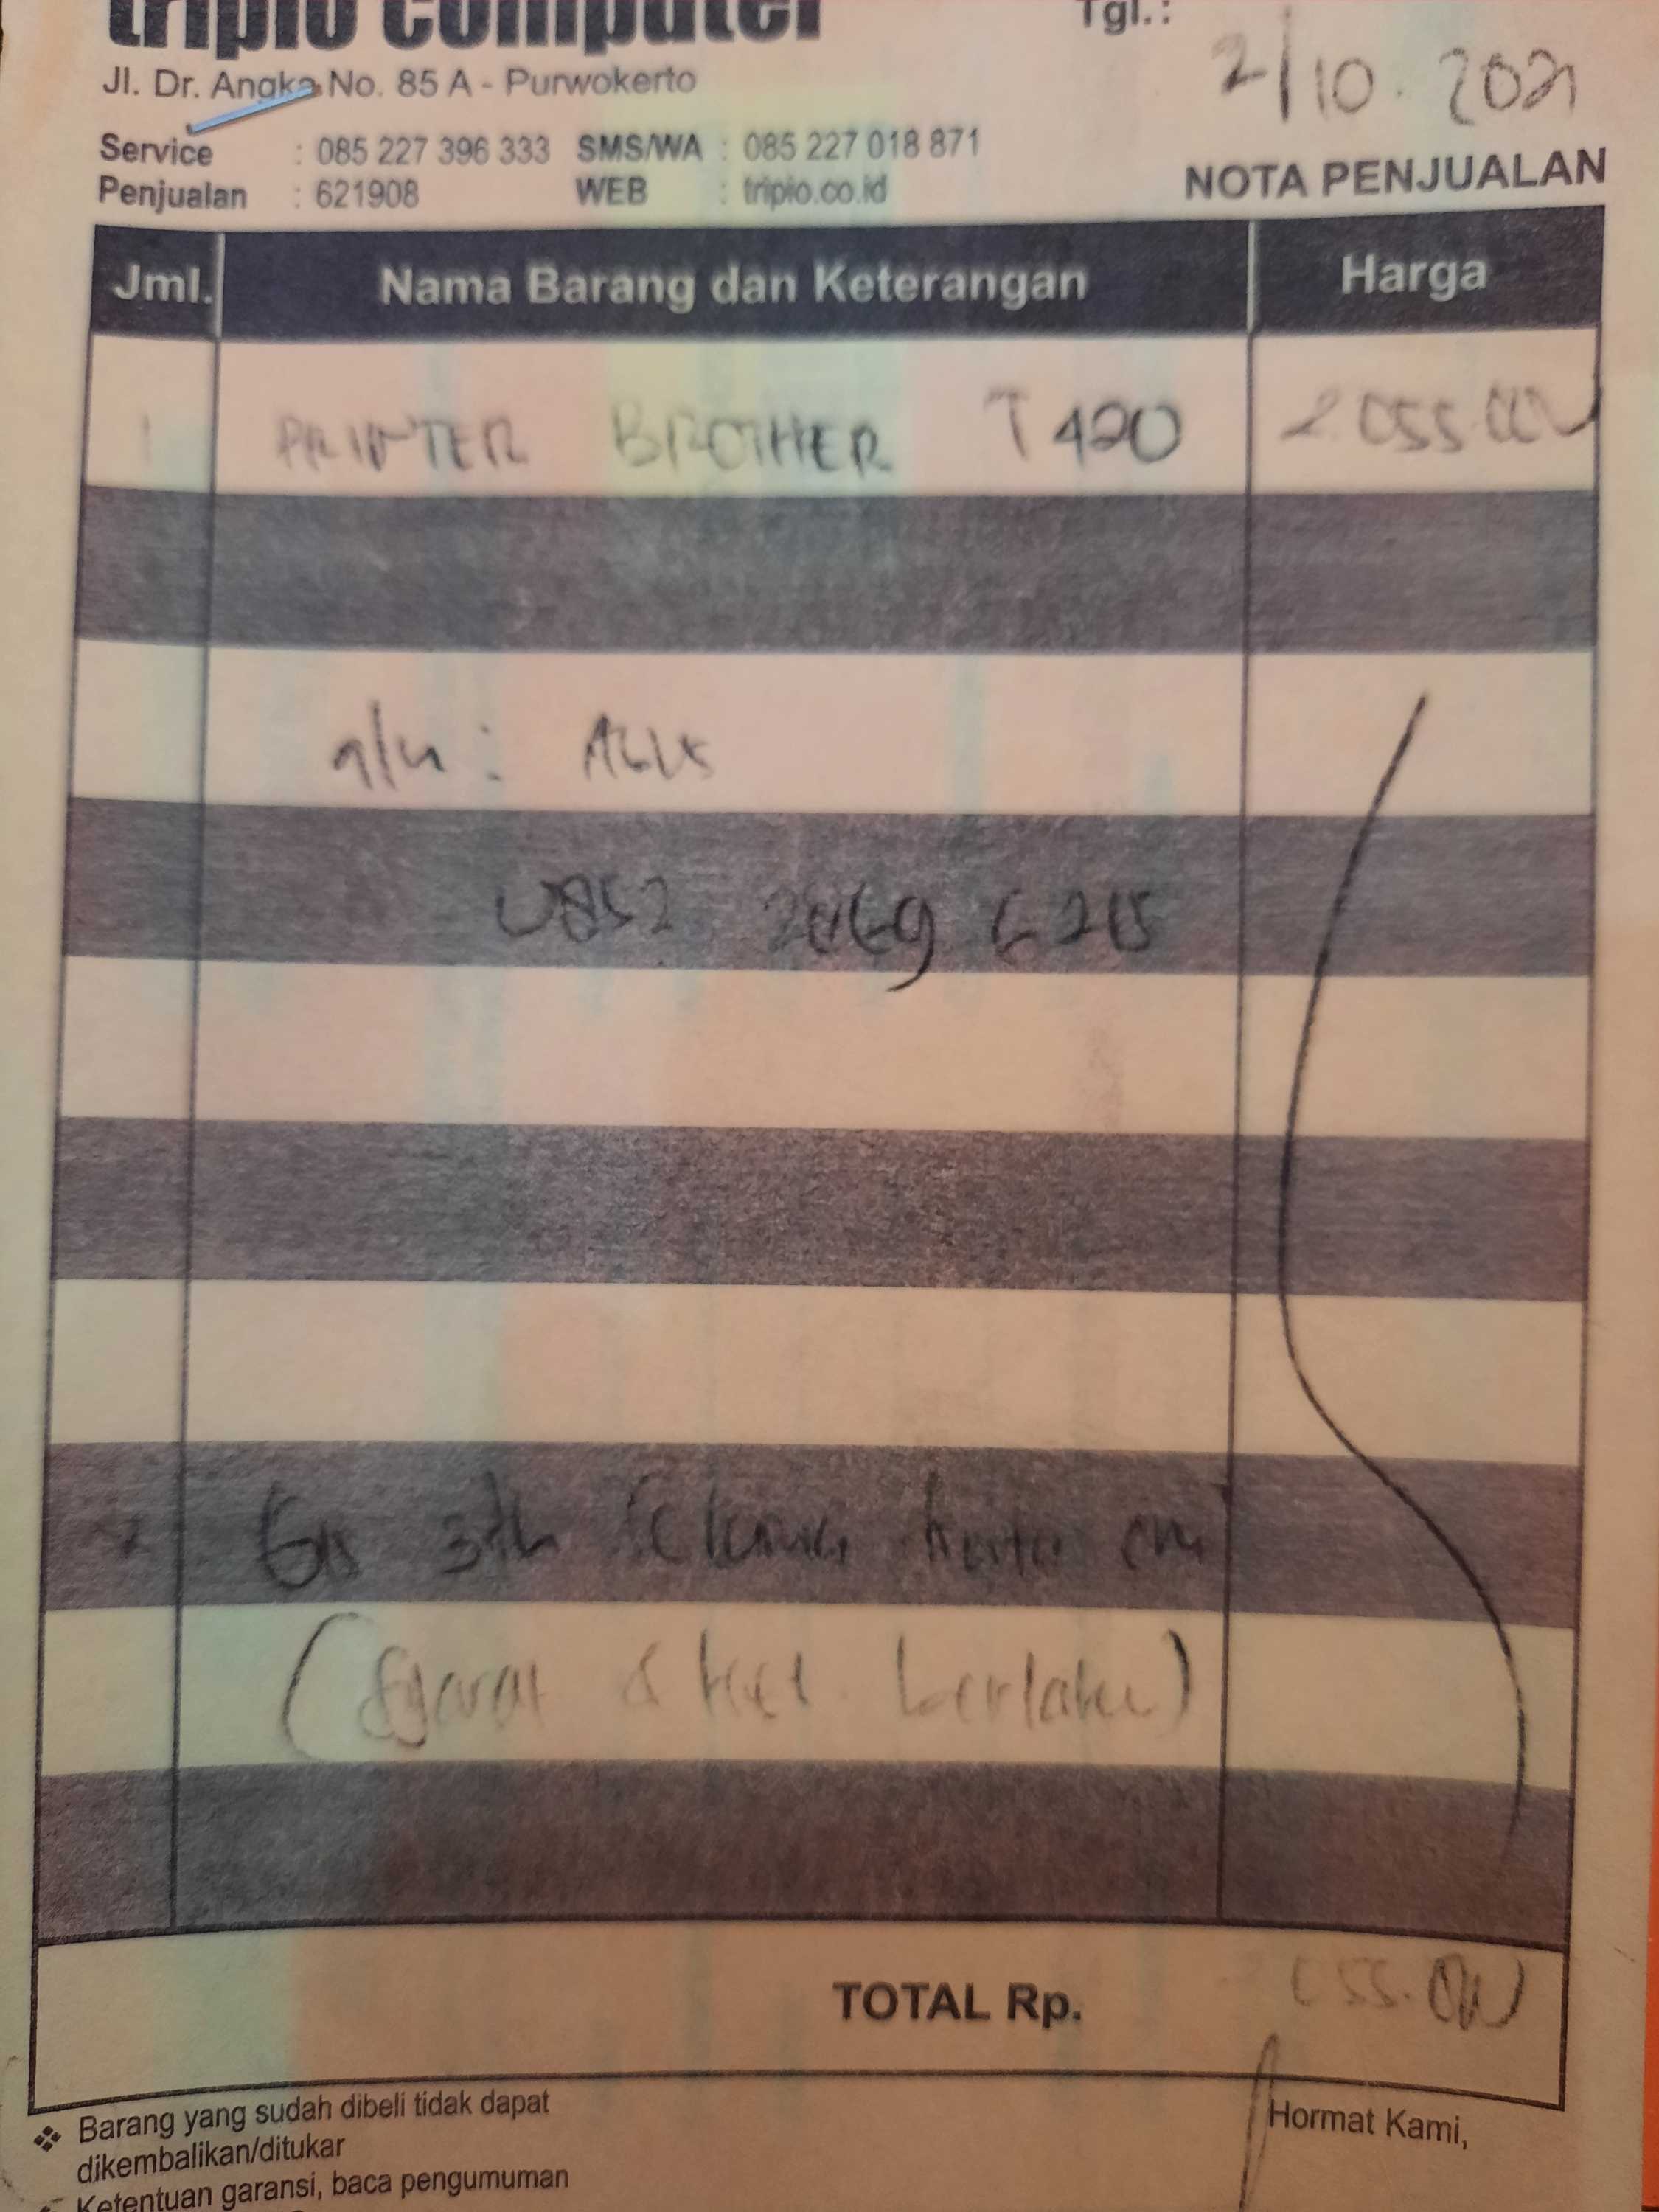 tripio computer
Jl. Dr. Angka No. 85 A - Purwokerto
Tgl.:
2/10.2021
Service : 085 227 396 333 SMS/WA : 085 227 018 871
Penjualan : 621908 WEB : tripio.co.id
NOTA PENJUALAN
Jml. Nama Barang dan Keterangan Harga
1 PRINTER BROTHER T420 2.055.000
a/n : AGUS
0852
3th
(Syarat & ket. berlaku)
TOTAL Rp.
Hormat Kami,
Barang yang sudah dibeli tidak dapat
dikembalikan/ditukar
Ketentuan garansi, baca pengumuman